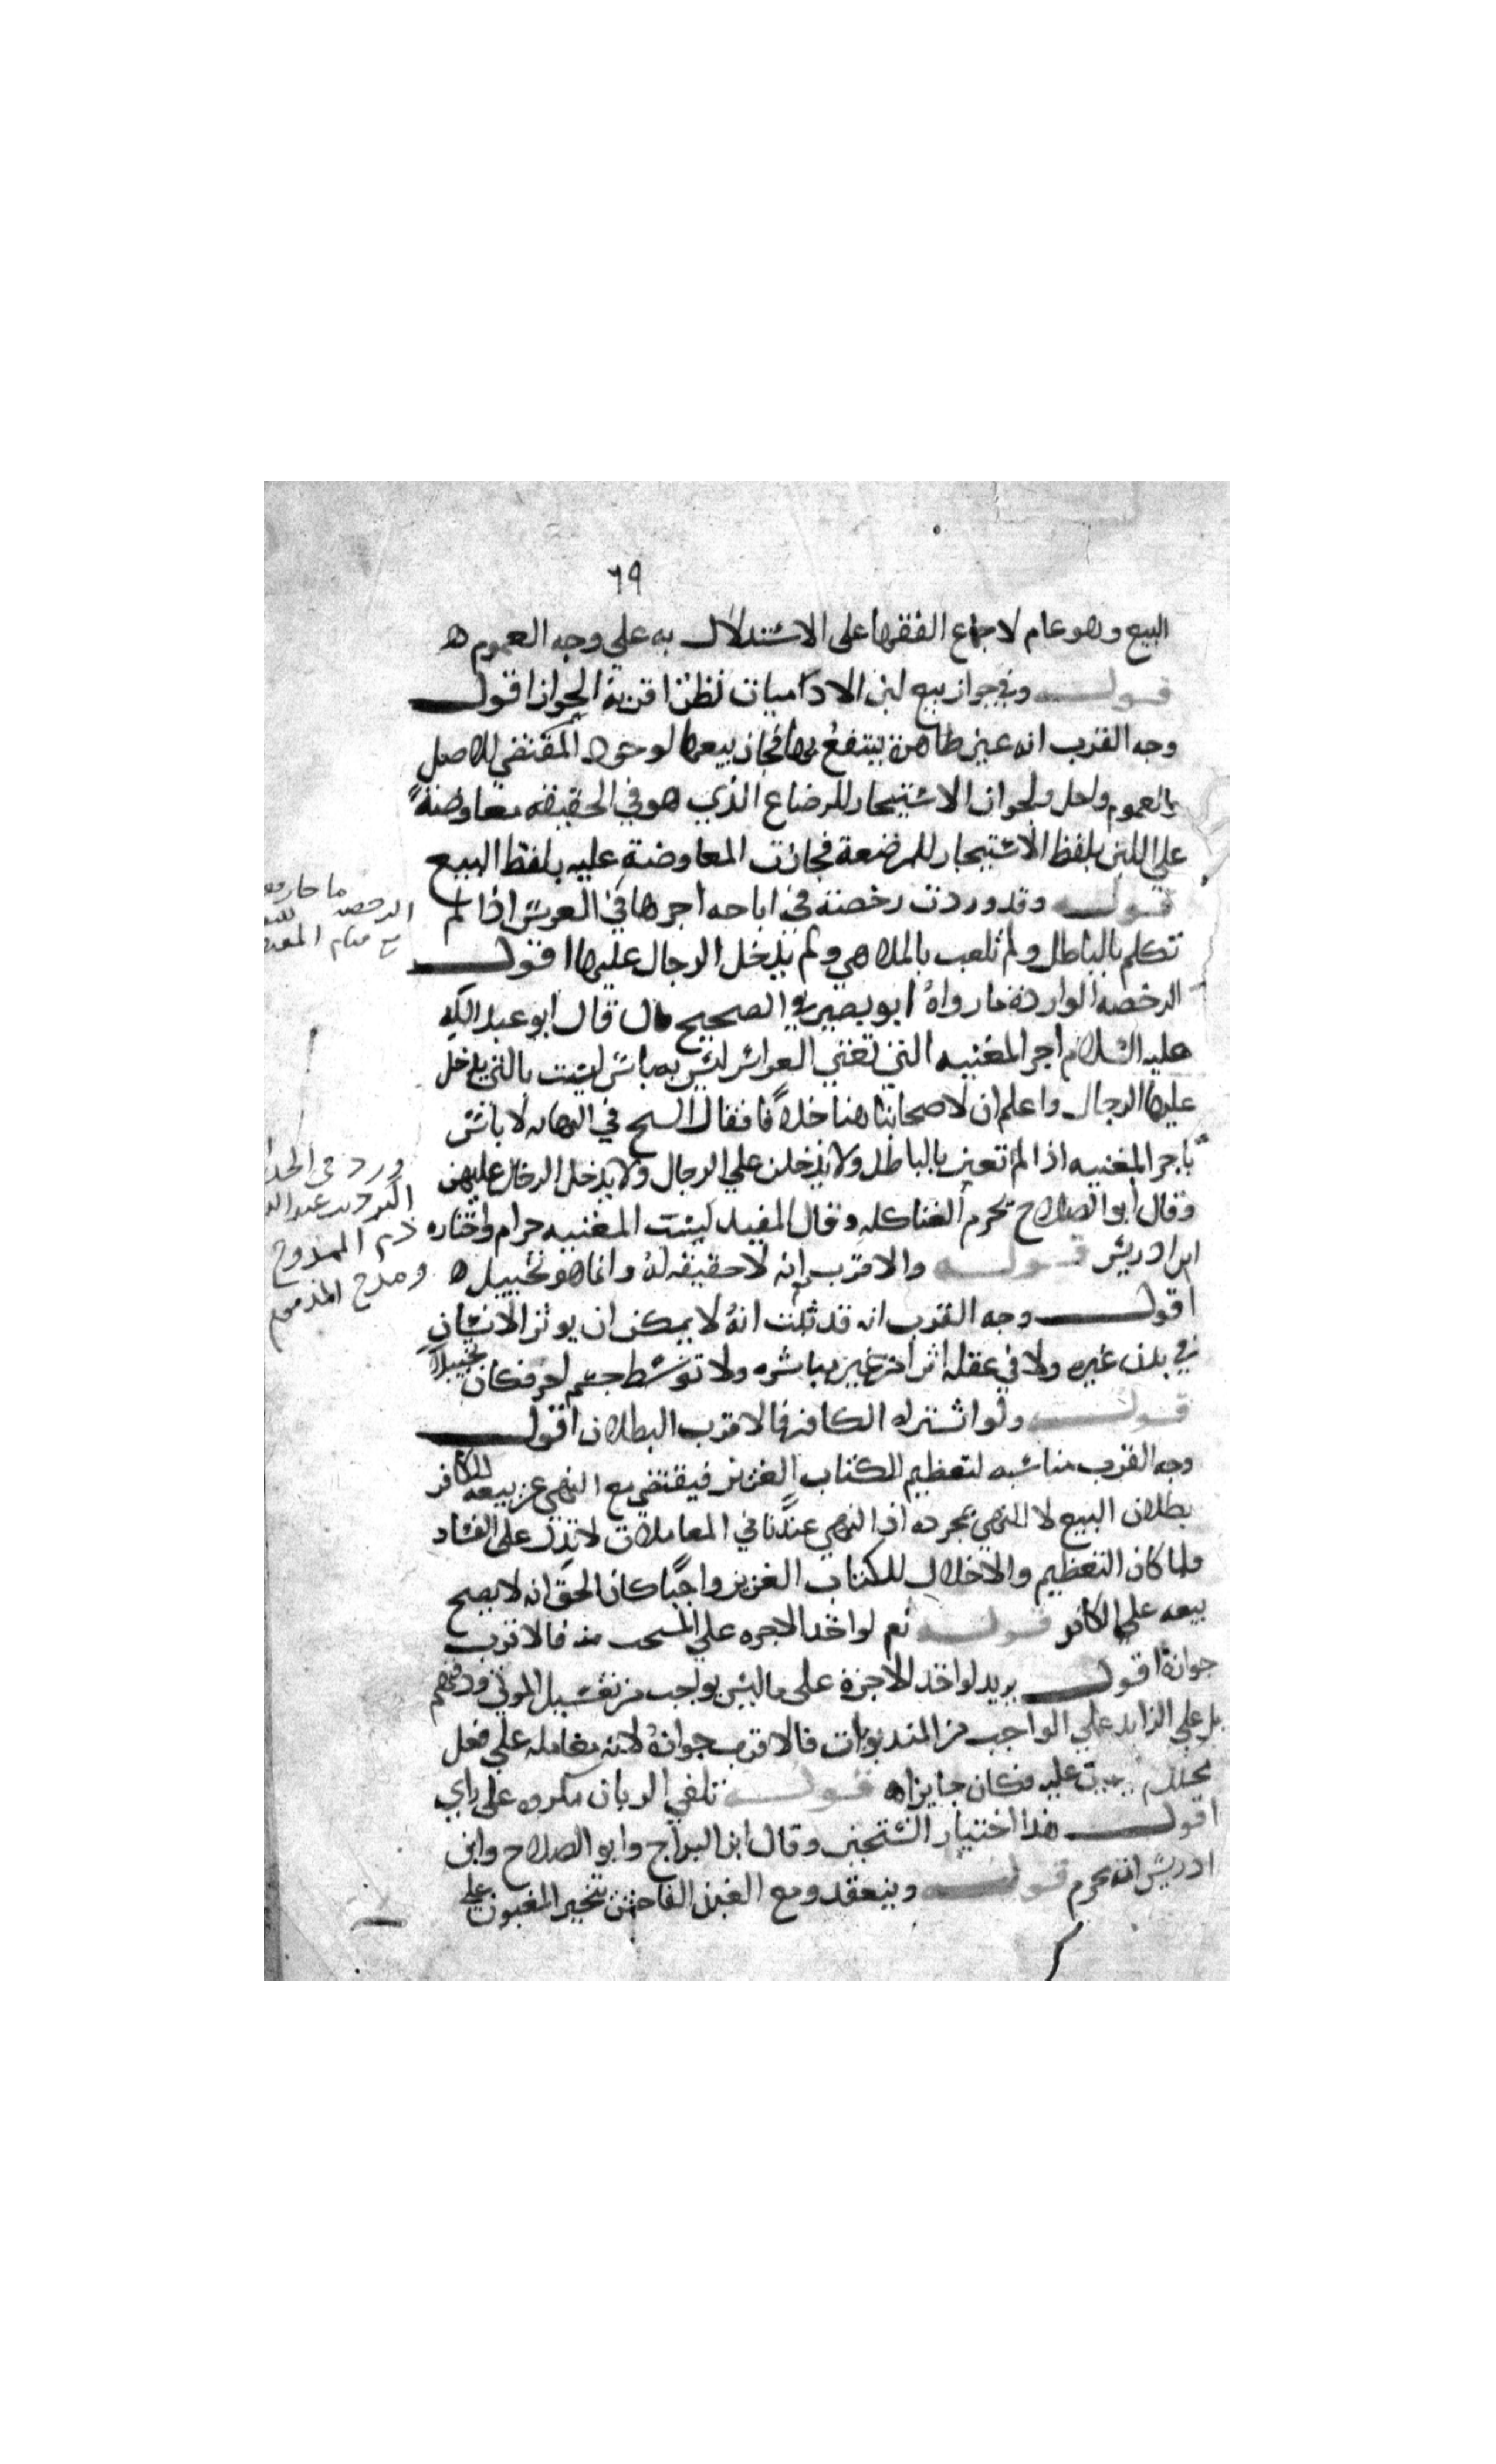 ٦٩
البيع وهو عام لاجماع الفقها على الاستدلال به على وجه العموم ه
قوله وفي جواز بيع لبن الادميات نظر اقربه الجواز اقول
وجه القرب انه عين طاهرة ينتفع بها فجاز بيعها لوجود المقتضي للاصل
بالعموم ولجواز الاستيجار للرضاع الذي هو في الحقيقه معاوضةً
على اللبن بلفظ الاستيجار للمرضعة فجازت المعاوضة عليه بلفظ البيع
قوله وقد وردت رخصة في اباحه اجرها في العرس اذا لم
تتكلم بالباطل ولم تلعب بالملاهي ولم يدخل الرجال عليها اقول
الرخصه الواردة ما رواهُ ابو بصير في الصحيح قال قال ابو عبد الله
عليه السلام اجر المغنيه التي تغني العرائس ليس به باس ليست بالتي يدخل
عليها الرجال واعلم ان لاصحابنا هنا خلافًا فقال الشيخ في النهايه لا باس
باجر المغنيه اذا لم تغن بالباطل ولا يدخلن على الرجال ولا يدخل الرجال عليهن
وقال ابو الصلاح يحرم الغنا كله وقال المفيد كسب المغنيه حرام واختاره
ابن ادريس قوله والاقرب انه لا حقيقه لهُ وانما هو تخييل ه
اقول وجه القرب انه قد ثبت انهُ لا يمكن ان يوثر الانسان
في بدن غيره ولا في عقله اثرا من غير مباشره ولا توسط جسم اخر فكان تخييلاً
قوله ولو اشتراه الكافر فالاقرب البطلان اقول
وجه القرب مناسبه لتعظيم الكتاب العزيز فيقتضي مع النهي عن بيعه للكافر
بطلان البيع لا النهي بمجرده اذ النهي عندنا في المعاملات لا تدل على الفساد
ولما كان التعظيم والاجلال للكتاب العزيز واجبًا كان الحق انه لا يصح
بيعه على الكافر قوله نعم لو اخذ الاجره على المستحب منه فالاقرب
جوازه اقول يريد لو اخذ الاجرة على ما ليس بواجب من تغسيل الموتى ودفنهم
بل على الزايد على الواجب من المندوبات فالاقرب جوازهُ لانه معامله على فعل
محلل عليه فكان جايزا ه قوله تلقي الركبان مكروه على راي
اقول هذا اختيار الشيخ وقال ابن البراج وابو الصلاح وابن
ادريس انه يحرم قوله وينعقد ومع الغبن الفاحش يتخير المغبون على
الرخصه
ورد في
ذم الممدوح
ومدح المذموم